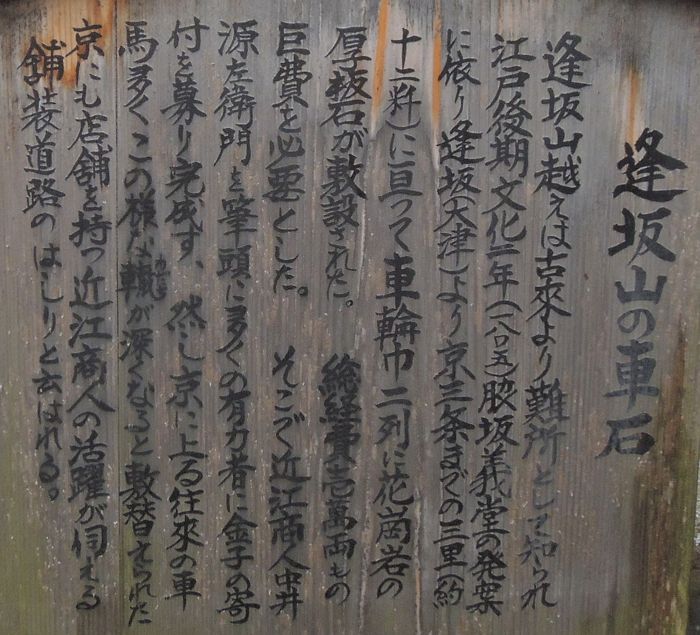 逢坂山の車石
逢坂山越えは古来より難所として知られ
江戸後期文化二年(一八〇五)脇坂義堂の発案
に依り逢坂(大津)より京三条までの三里(約
十二粁)に亘って車輪巾二列に花崗岩の
厚板石が敷設された。総経費壱萬両もの
巨費を必要とした。そこで近江商人中井
源左衛門を筆頭に多くの有力者に金子の寄
付を募り完成す、然し京に上る往来の車
馬多くこの様な轍が深くなると敷替えられた
京にも店舗を持つ近江商人の活躍が伺える
舗装道路のはしりと云はれる。